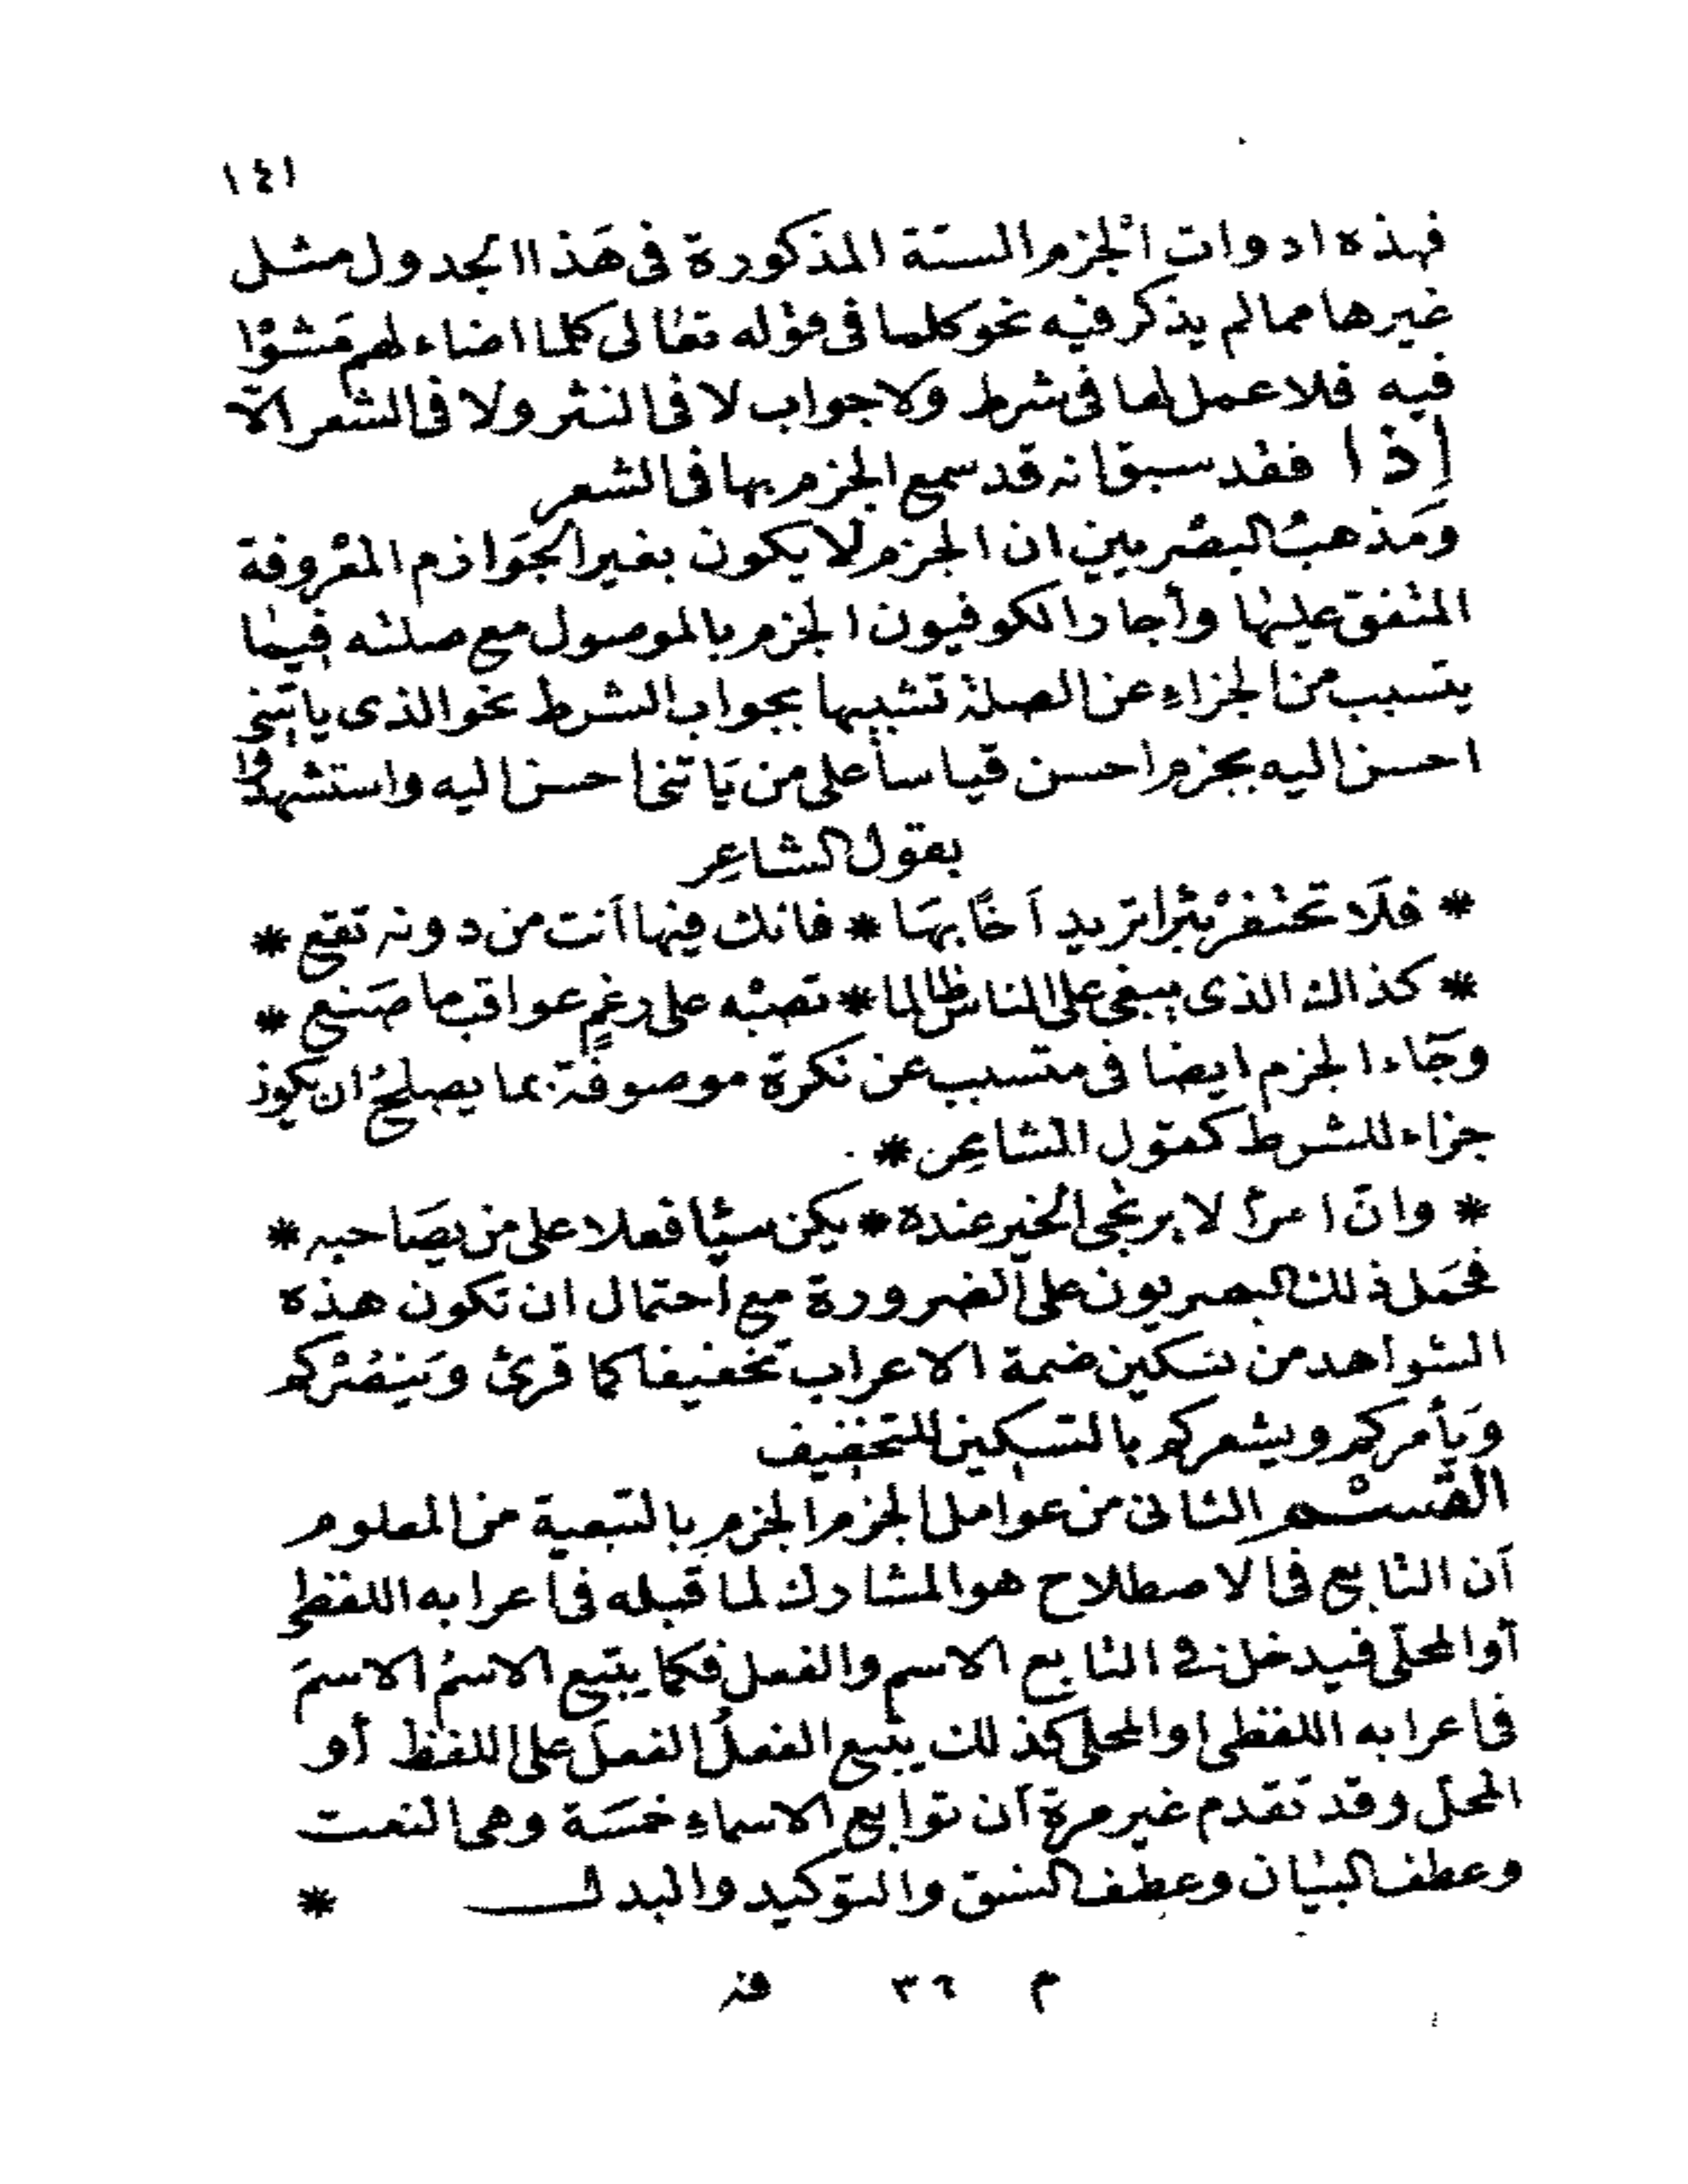 ١٤١
فهذه ادوات الجزم الستة المذكورة فى هَذا الجدول مثل
غيرها مما لم يذكر فيه نحو كلما فى قوله تعالى كلما اضاء لهم مَشَوْا
فيه فلا عمل لها فى شرط ولا جواب لا فى النثر ولا فى الشعر الاّ
إذا فقد سبق انه قد سمع الجزم بها فى الشعر
وَمَذهبُ البصْريين ان الجزم لا يكون بغير الجَوازم المعْروفة
المتفق عليها وأجاز الكوفيون الجزم بالموصول مع صلته فيما
يتسبب من الجزاءِ عن الصلة تشبيها بجواب الشرط نحو الذى ياتينى
احسن اليه بجزم احسن قياساً على من يَاتنى احسن اليه واستشهدُوا
بقول الشاعِر
* فلَا تحْتفرْ بئرا تريد أخًا بهَا * فانك فيها أنت من دونه تقع *
* كذاك الذى يبغى على الناس ظالما * تصبْه على رغمٍ عواقب ما صَنع *
وجَاء الجزم ايضا فى متسبب عن نكرة موصوفة بما يصلحُ ان يكون
جزاء للشرط كقول الشاعِر *
* وانّ امرأ لا يرتجى الخير عنده * يكن سيئا فعلا على من يصَاحبه *
فحَمل ذلك البصريون على الضرورة مع احتمال ان تكون هذه
الشواهد من تسكين ضمة الاعراب تخفيفا كما قرئ وَيَنصُرْكم
وَيأمركم ويشعركم بالتسكين للتخفيف
القسْم الثانى من عوامل الجزم الجزم بالتبعية من المعلوم
أن التابع فى الاصطلاح هو المشارك لما قبله فى اعرابه اللفظى
أو المحلّى فيدخل فى التابع الاسم والفعل فكما يتبع الاسمُ الاسمَ
فى اعرابه اللفظى او المحلى كذلك يتبع الفعلُ الفعلَ على اللفظ أو
المحلّ وقد تقدم غير مرة أن توابع الاسماءِ خمسَة وهى النعت
وعطف البيان وعطف النسق والتوكيد والبدل *
م ٣٦ فة